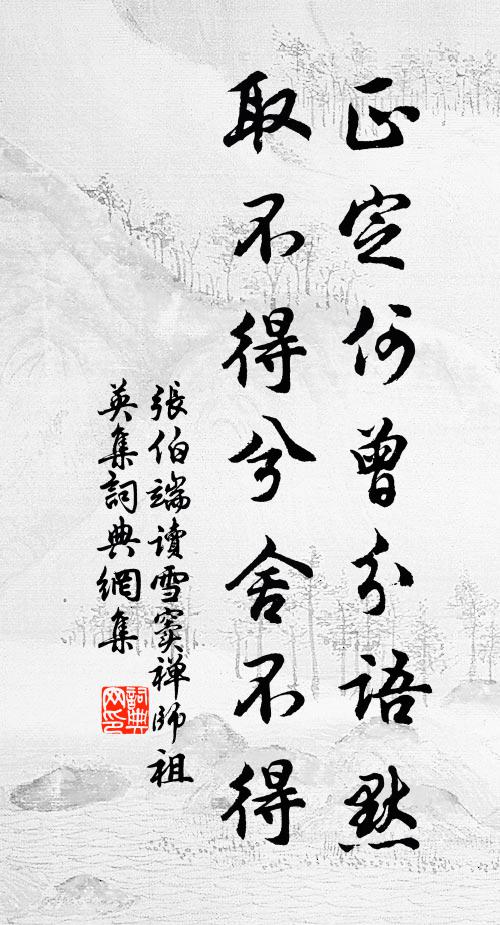 正定何曾分語默
取不得兮舍不得
張伯端讀雪竇禪師祖
英集詞典網集
詞典
网印